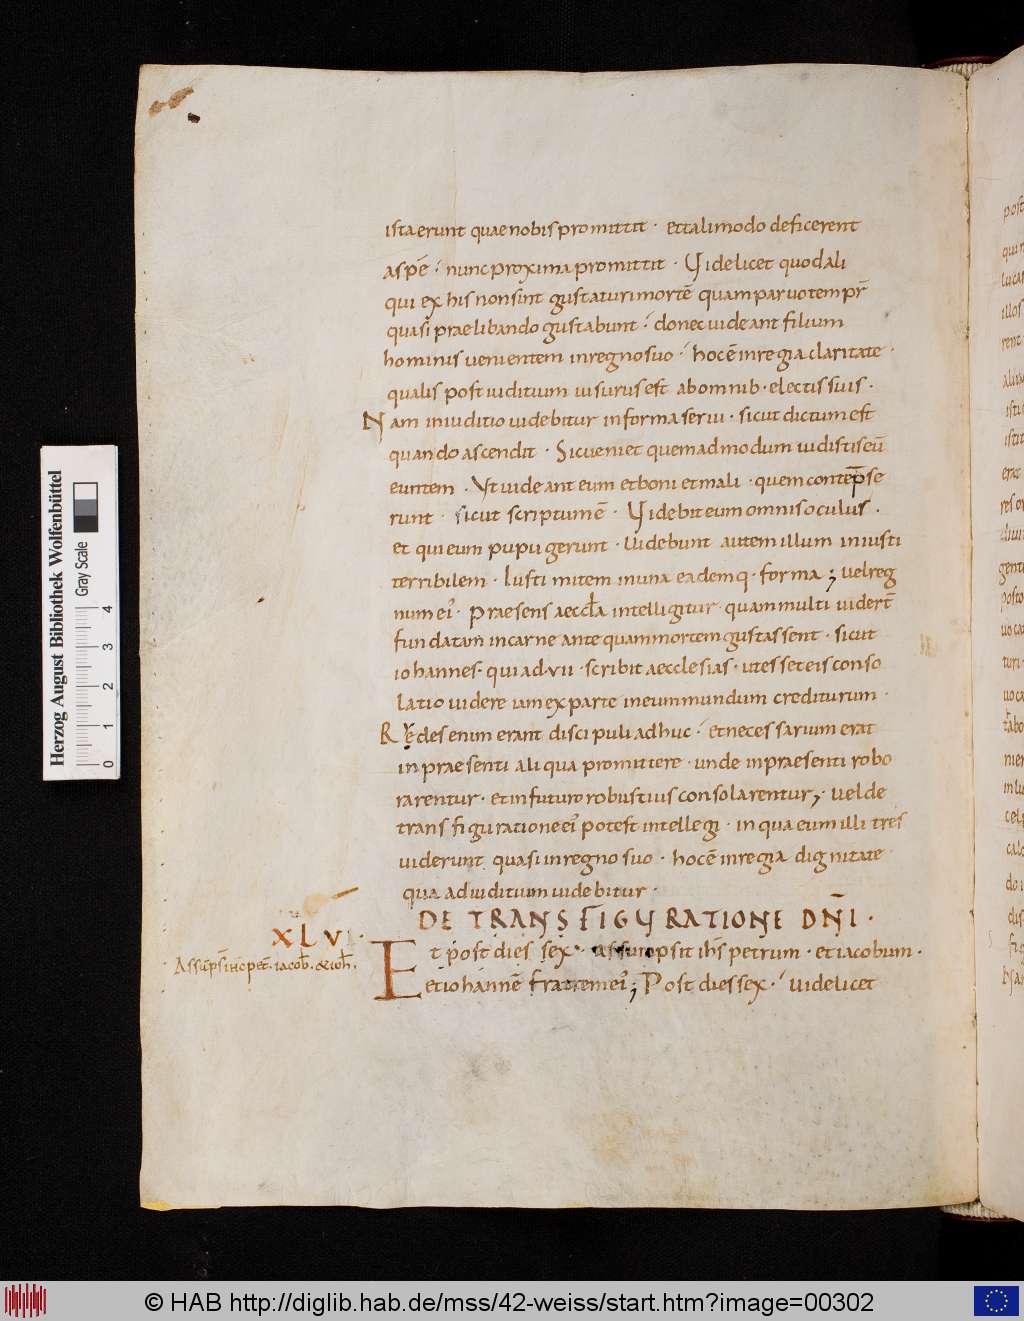 ista erunt quae nobis promittit · et tali modo deficerent
a spē ⁝ nunc proxima promittit · Videlicet quod ali
qui ex his non sint gustaturi mortē quam parvo temp̄r
quasi praelibando gustabunt ⁝ donec uideant filium
hominis uenientem in regno suo ⁝ hoc ē in regia claritate ·
qualis post iuditium uisurus est ab omnib· electis suis ·
Nam in iuditio uidebitur in forma serui · sicut dictum est
quando ascendit · Sic ueniet quem ad modum uidistis eū
euntem · Vt uideant eum et boni et mali · quem contēpse
runt · sicut scriptum ē · Videbit eum omnis oculus ·
et qui eum pupugerunt · Uidebunt autem illum iniusti
terribilem · Iusti mitem in una eademq· forma ; uel reg
num ei᾿ · praesens aeccƚa intelligitur · quam multi uidert̄
fundatam in carne antequam mortem gustassent · sicut
iohannes · qui ad · vii · scribit aecclesias · ut esset eis conso
latio uidere iam ex parte in eum mundum crediturum ·
Redes enim erant discipuli adhuc ⁝ et necessarium erat
in praesenti aliqua promittere · unde in praesenti robo
rarentur · et in futuro robustius consolarentur ; uel de
transfiguratione ei᾿ potest intellegi · in qua eum illi tres
uiderunt quasi in regno suo · hoc ē in regia dignitate
qua ad iuditium uidebitur ·
DE TRANSFIGURATIONE DN̄I ·
XLVI ·
Et post dies sex · assumpsit ih̄s petrum · et iacobum ·
Assūpsit ih̄s pet̄ · iacob̄ · & ioh̄ ·
et iohannē fratrem ei᾿ ; Post dies sex · ⁝ uidelicet
Herzog August Bibliothek Wolfenbüttel
Gray Scale
0 1 2 3 4
© HAB http://diglib.hab.de/mss/42-weiss/start.htm?image=00302